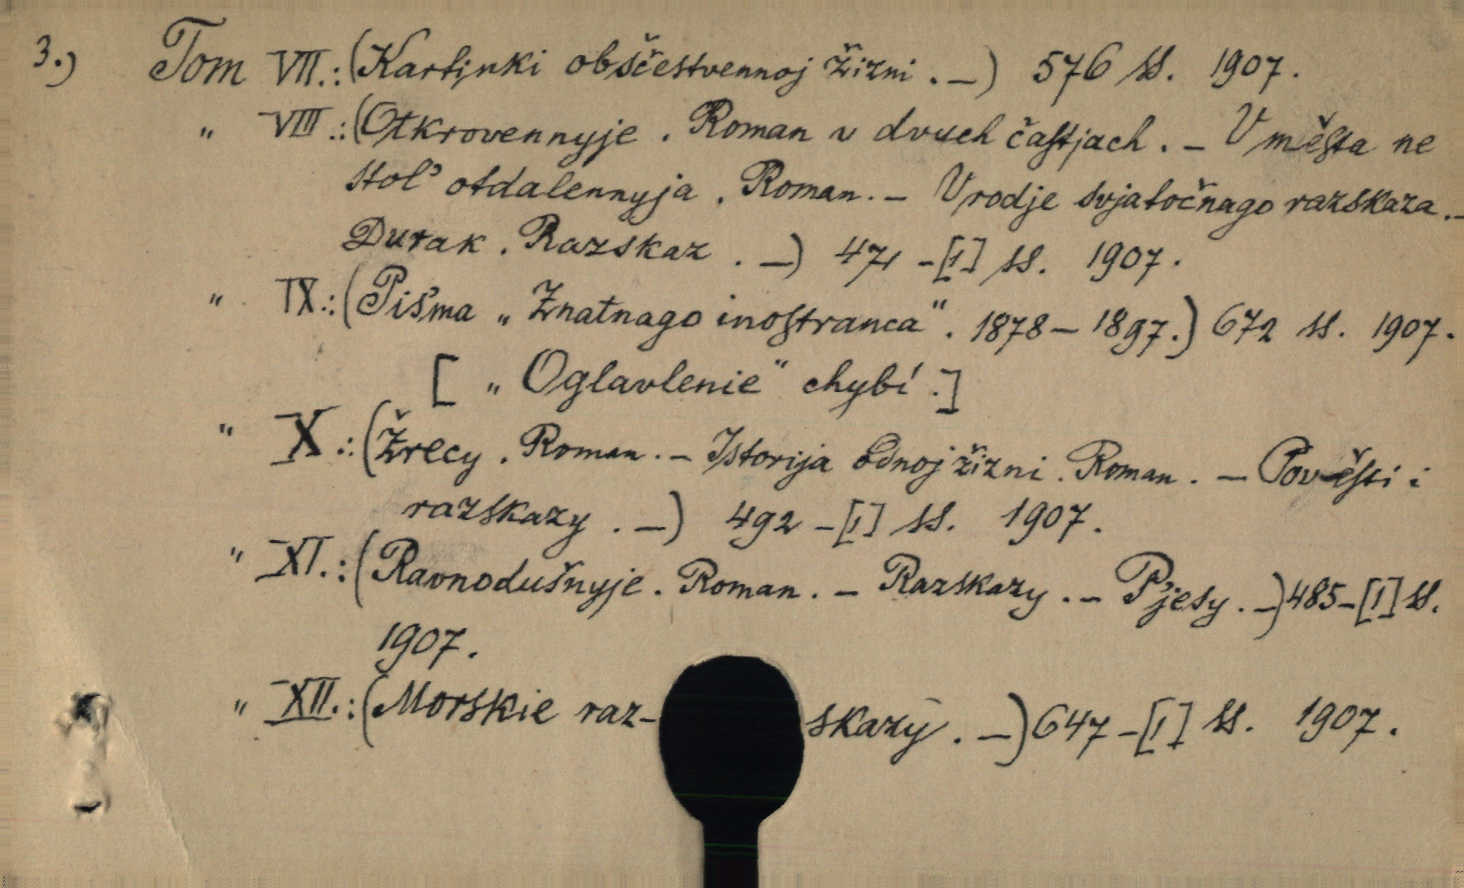 3.) Tom VII.: (Kartinki obščestvennoj žizni. —) 576 ss. 1907.
" VIII.: (Otkrovennyje. Roman v dvuch častjach. — V města ne
stol' otdalennyja. Roman. — Vrodje svjatočnago razskaza. —
Durak. Razskaz. —) 471 - [1] ss. 1907.
" IX.: (Piśma „Znatnago inostranca". 1878 — 1897.) 672 ss. 1907.
[ „Oglavlenie" chybí.]
" X.: (Žrecy. Roman. — Istorija odnoj žizni. Roman. — Pověsti i
razskazy. —) 492 - [1] ss. 1907.
" XI.: (Ravnodušnyje. Roman. — Razskazy. — P'jesy. —) 485 - [1] ss.
1907.
" XII.: (Morskie raz-skazy. —) 647 - [1] ss. 1907.